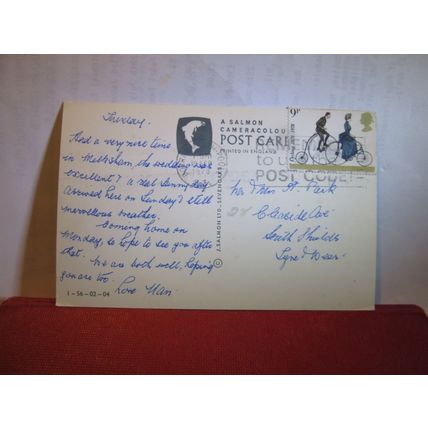 Tuesday.
Had a very nice time
in Melksham, the wedding was
excellent & a real sunny day
arrived here on Sunday & still
marvellous weather.
Coming home on
Monday so hope to see you after
that. We are both well, hoping
you are too. Love Nan.
1-56-02-04
A SALMON
CAMERACOLOUR
POST CARD
PRINTED IN ENGLAND
J. SALMON LTD., SEVENOAKS ©
1978
REMEMBER
TO USE THE
POST CODE
9P
Mr & Mrs A. Park
28 Cleaside Ave
South Shields
Tyne & Wear